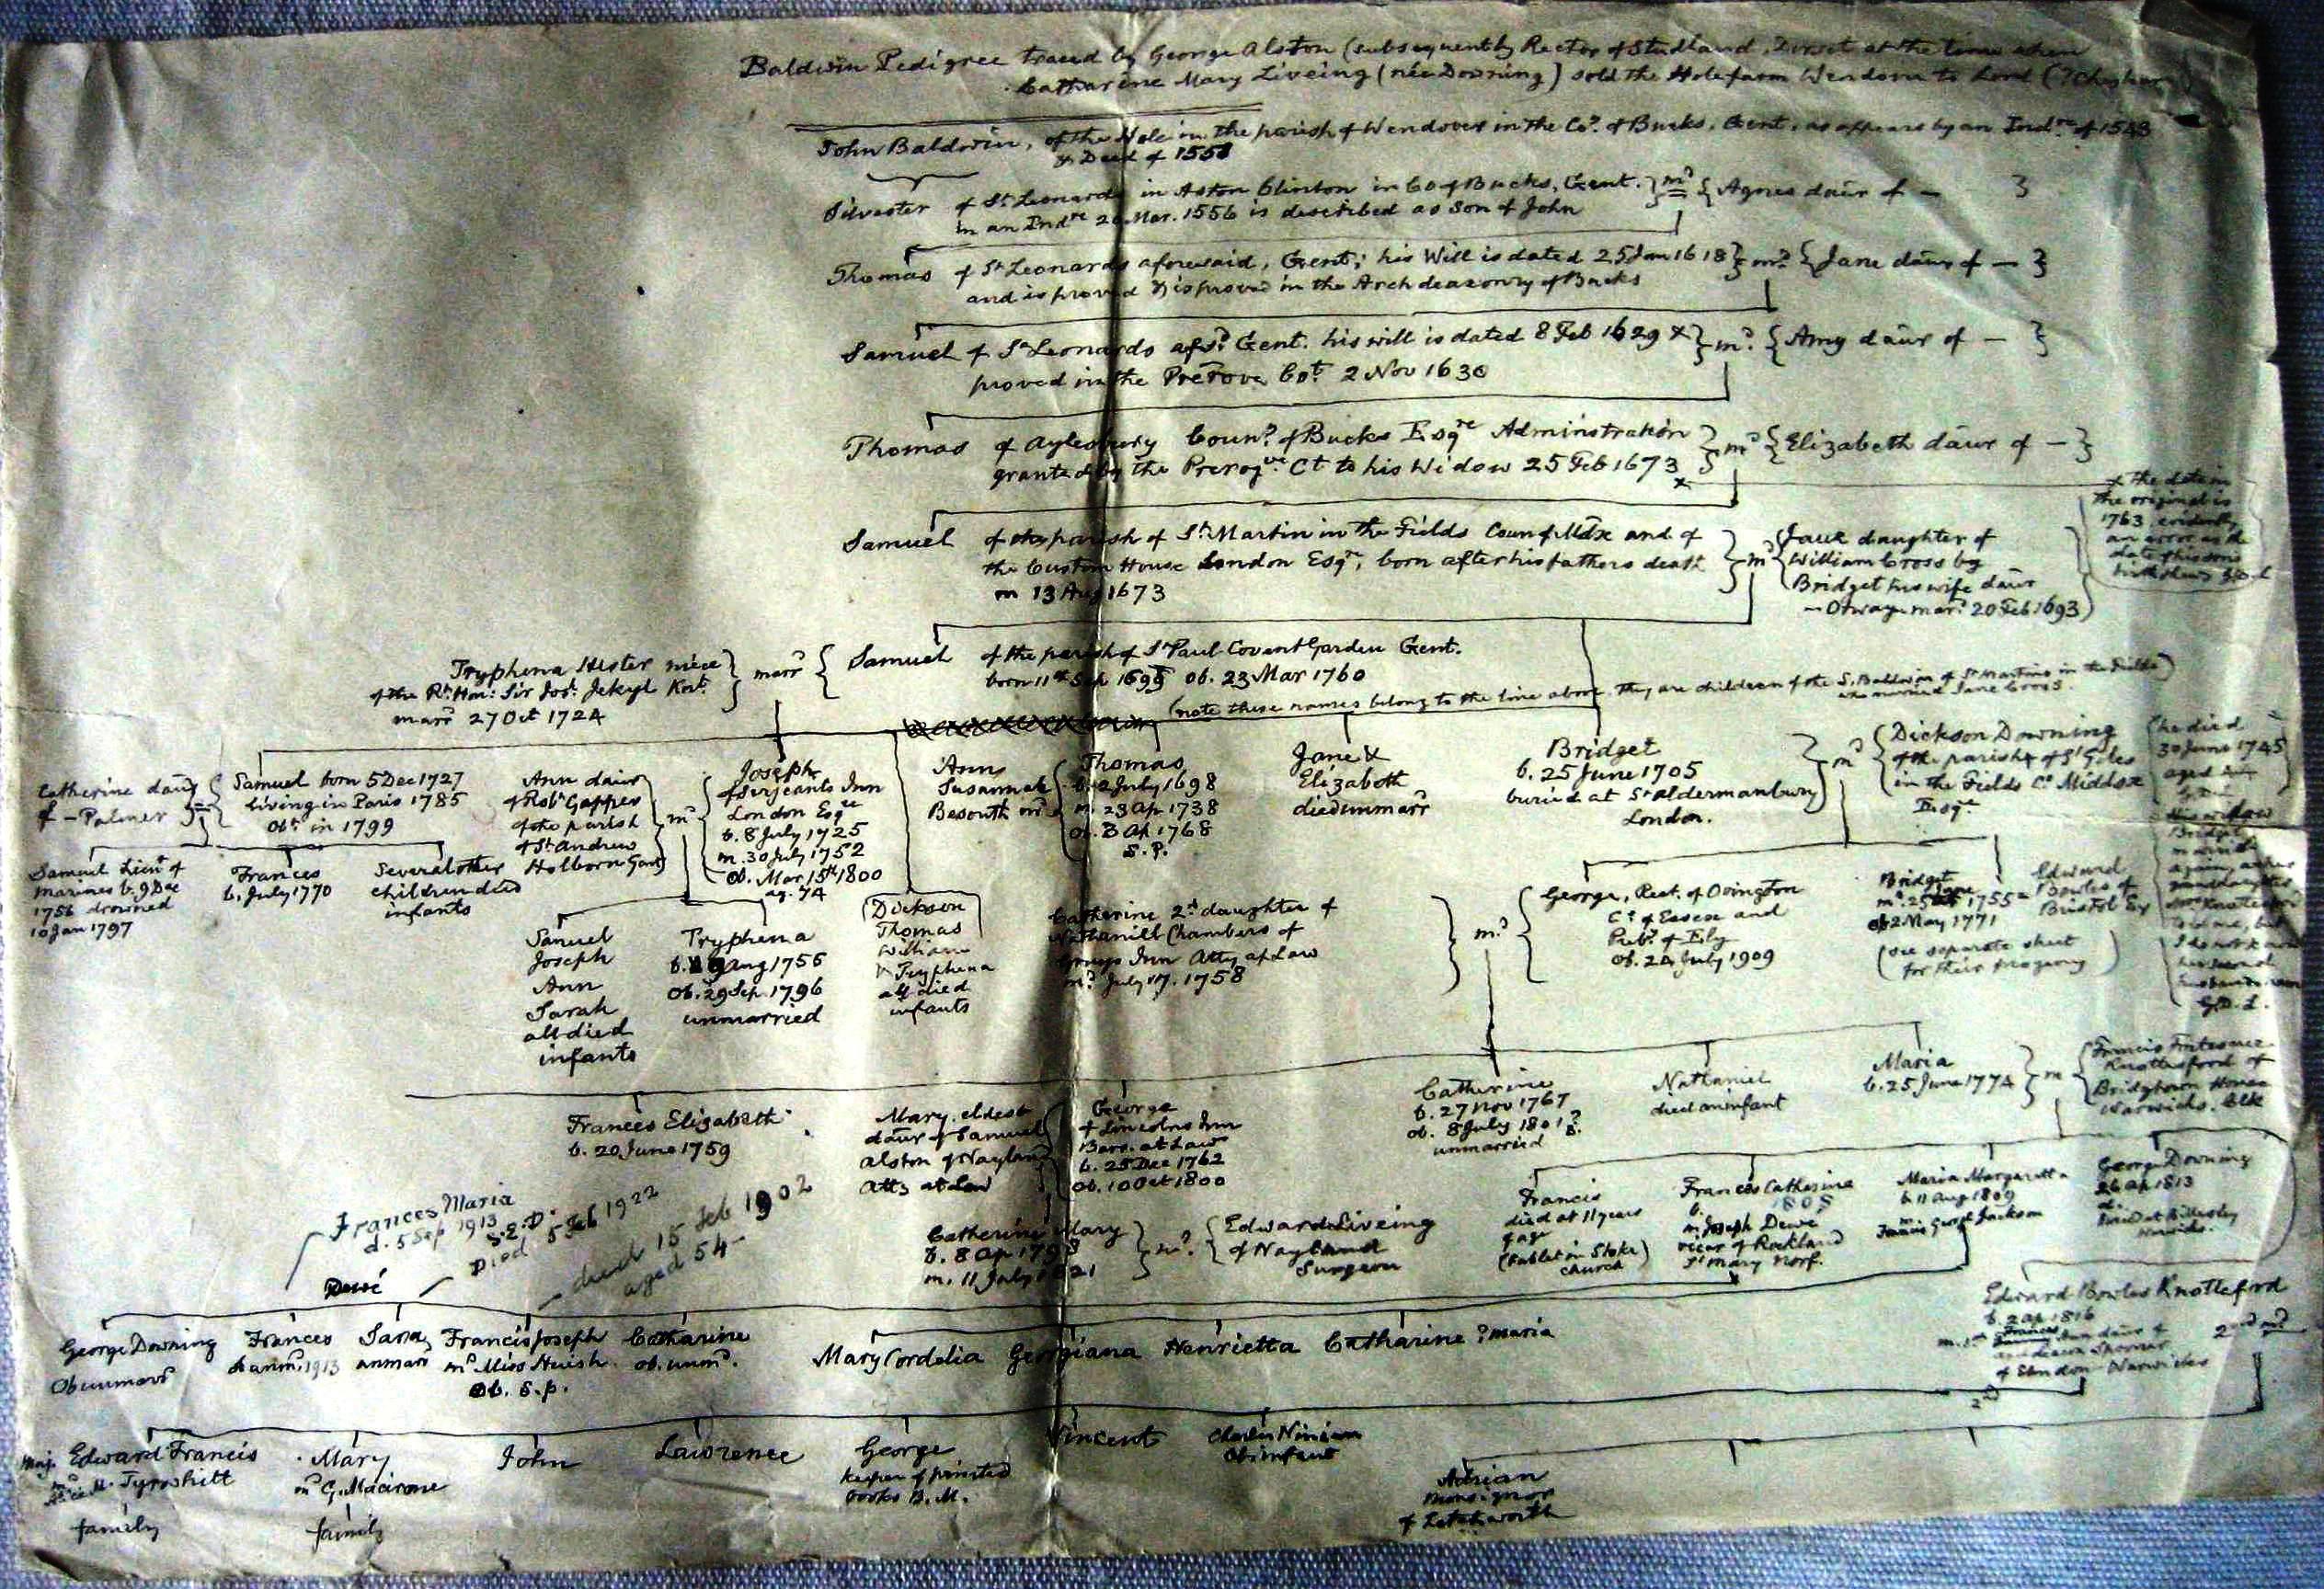 Baldwin Pedigree traced by George Alston (subsequently Rector of Studland, Dorset at the time when
Catharine Mary Liveing (née Downing) sold the Hole farm Wendover to Lord
John Baldwin, of the Hole in the parish of Wendover in the Co. of Bucks, Gent. as appears by an Ind.re of 1543
& Deed of 1558
Silvester of St Leonards in Aston Clinton in Co of Bucks, Gent. } m.d { Agnes daur of — }
in an Indre 20 Mar. 1556 is described as son of John
Thomas of St Leonards aforesaid, Gent; his Will is dated 25 Jan 1618 } m.d { Jane daur of — }
and is proved & is proved in the Archdeaconry of Bucks
Samuel of St Leonards afs.d Gent. his will is dated 8 Feb 1629 & } m.d { Amy daur of — }
proved in the Prerove Cot. 2 Nov 1630
Thomas of Aylesbury Coun.y of Bucks Esqre Adminstration } m.d { Elizabeth daur of — }
granted by the Prerogve Ct to his Widow 25 Feb 1673 x
x the date in
the original is
1763 evidently
an error as the
date of his sons
birth shows
Samuel of the parish of St Martin in the Fields Coun of Mdx and of
the Custom House London Esqre, born after his fathers death
on 13 Aug 1673
} m.d { Jane daughter of
William Cross by
Bridget his wife daur
— Otway mar.d 20 Feb 1693 }
Tryphena Hester niece
of the Rt Hon: Sir Jos: Jekyl Knt.
marr.d 27 Oct 1724
} marr.d { Samuel of the parish of St Paul Covent Garden Gent.
born 11th Sep 1695 ob. 23 Mar 1760
(note these names belong to the line above, they are children of the S. Baldwin of St Martins in the Fields
who married Jane Cross)
Catherine daur
of — Palmer
Samuel born 5 Dec 1727
living in Paris 1785
Obt in 1799
Ann daur
of Robt Gapper
of the parish
of St Andrew
Holborn Gent
m.d
Joseph
of Serjeants Inn
London Esqre
b. 8 July 1725
m. 30 July 1752
ob. Mar 15th 1800
ag. 74
Ann
Susannah
Besouth m.d
Thomas
b. 2 July 1698
m. 23 Ap 1738
ob. 3 Ap 1768
S. P.
Jane &
Elizabeth
died unmarr
Bridget
b. 25 June 1705
buried at St Aldermanbury
London.
m.d
Dickson Downing
of the parish of St Giles
in the Fields Co Middsx
Esqre
(he died
30 June 1745
aged
his widow
Bridget
married
again, as her
granddaughter
Mrs Knottesford
told me, but
I do not know
her second
husbands name
G.D.L.
Samuel Lieut of
marines b. 9 Dec
1756 drowned
10 Jan 1797
Frances
b. July 1770
Several other
children died
infants
Samuel
Joseph
Ann
Sarah
all died
infants
Tryphena
b. 19 Aug 1755
Ob. 29 Sep 1796
unmarried
(Dickson
Thomas
William
& Tryphena
all died
infants
Catherine 2d daughter of
Nathaniel Chambers of
Grays Inn Atty at Law
m.d July 17. 1758
m.d
George, Rect. of Ovington
Co of Essex and
Preb.y of Ely
ob. 24 July 1909
Bridget
m.d 25 June 1755 =
ob 2 May 1771
(see separate sheet
for their progeny)
Edward
Bowles of
Bristol Esq
Frances Elizabeth
b. 20 June 1759
Mary, eldest
daur of Samuel
Alston of Nayland
Atty at Law
George
of Lincolns Inn
Barr. at Law
b. 25 Dec 1762
Ob. 10 Oct 1800
Catherine
b. 27 Nov 1767
ob. 8 July 1801?
unmarried
Nathaniel
died an infant
Maria
b. 25 June 1774
} m {
Francis Fortescue
Knottesford of
Bridgtown House
Warwicks. Clk
Catherine Mary
b. 8 Ap 1798
m. 11 July 1821
} m.d {
Edward Liveing
of Nayland
Surgeon
Francis
died at 11 years
of age
(tablet in Stoke
church)
Frances Catherine
b. 808
m Joseph Dewe
vicar of Rockland
St Mary Norf.
Maria Margaretta
b. 11 Aug 1809
m. Francis George Jackson
George Downing
26 Ap 1813
d.
buried at Billesley
Warwicks.
Frances Maria
d. 5 Sep 1913
S.E.D.
Died 5 Feb 1922
died 15 Feb 1902
aged 54
Dewé
George Downing
Ob unmarr.d
Frances
ob unm. 1913
Sara
unmarr
Francis Joseph
m.d Miss Huish.
Ob. s.p.
Catharine
ob. unm.d
Mary Cordelia Georgiana Henrietta Catharine ? Maria
Edward Bowles Knottesford
b. 2 Ap 1816
m. 1st Frances
2nd m.d
of Elmdon Warwicks
2nd
Maj. Edward Francis
m.d Alice M. Tyrwhitt
family
Mary
m.d G. Macirone
family
John
Lawrence
George
keeper of printed
books B. M.
Vincent
Charles Ninian
Ob infans
Adrian
Monsignor
of Letchworth